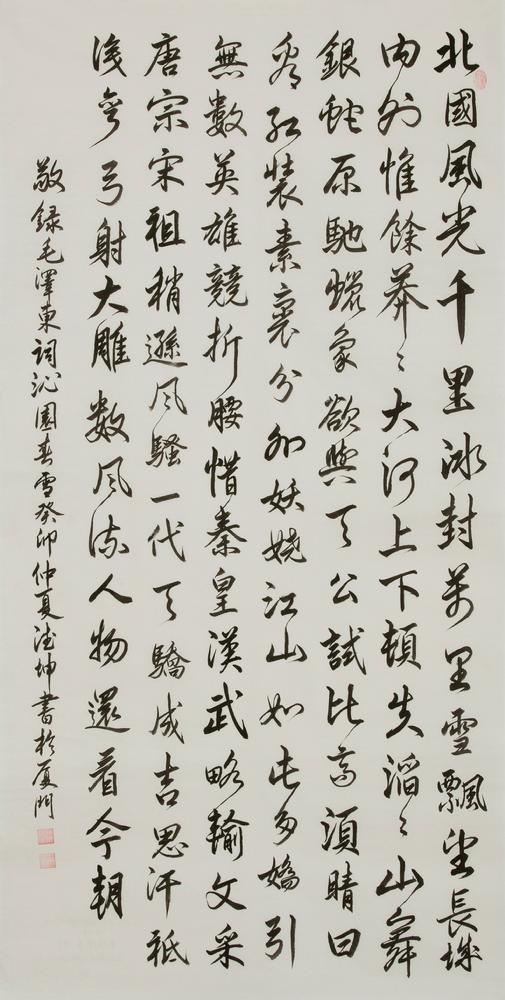 北國風光千里冰封萬里雪飄望長城
内外惟餘莽〻大河上下頓失滔〻山舞
銀蛇原馳蠟象欲與天公試比高須晴日
看紅裝素裹分外妖嬈江山如此多嬌引
無數英雄競折腰惜秦皇漢武略輸文采
唐宗宋祖稍遜風騷一代天驕成吉思汗祗
識彎弓射大雕數風流人物還看今朝
敬録毛澤東詞沁園春雪癸卯仲夏坤書於厦門